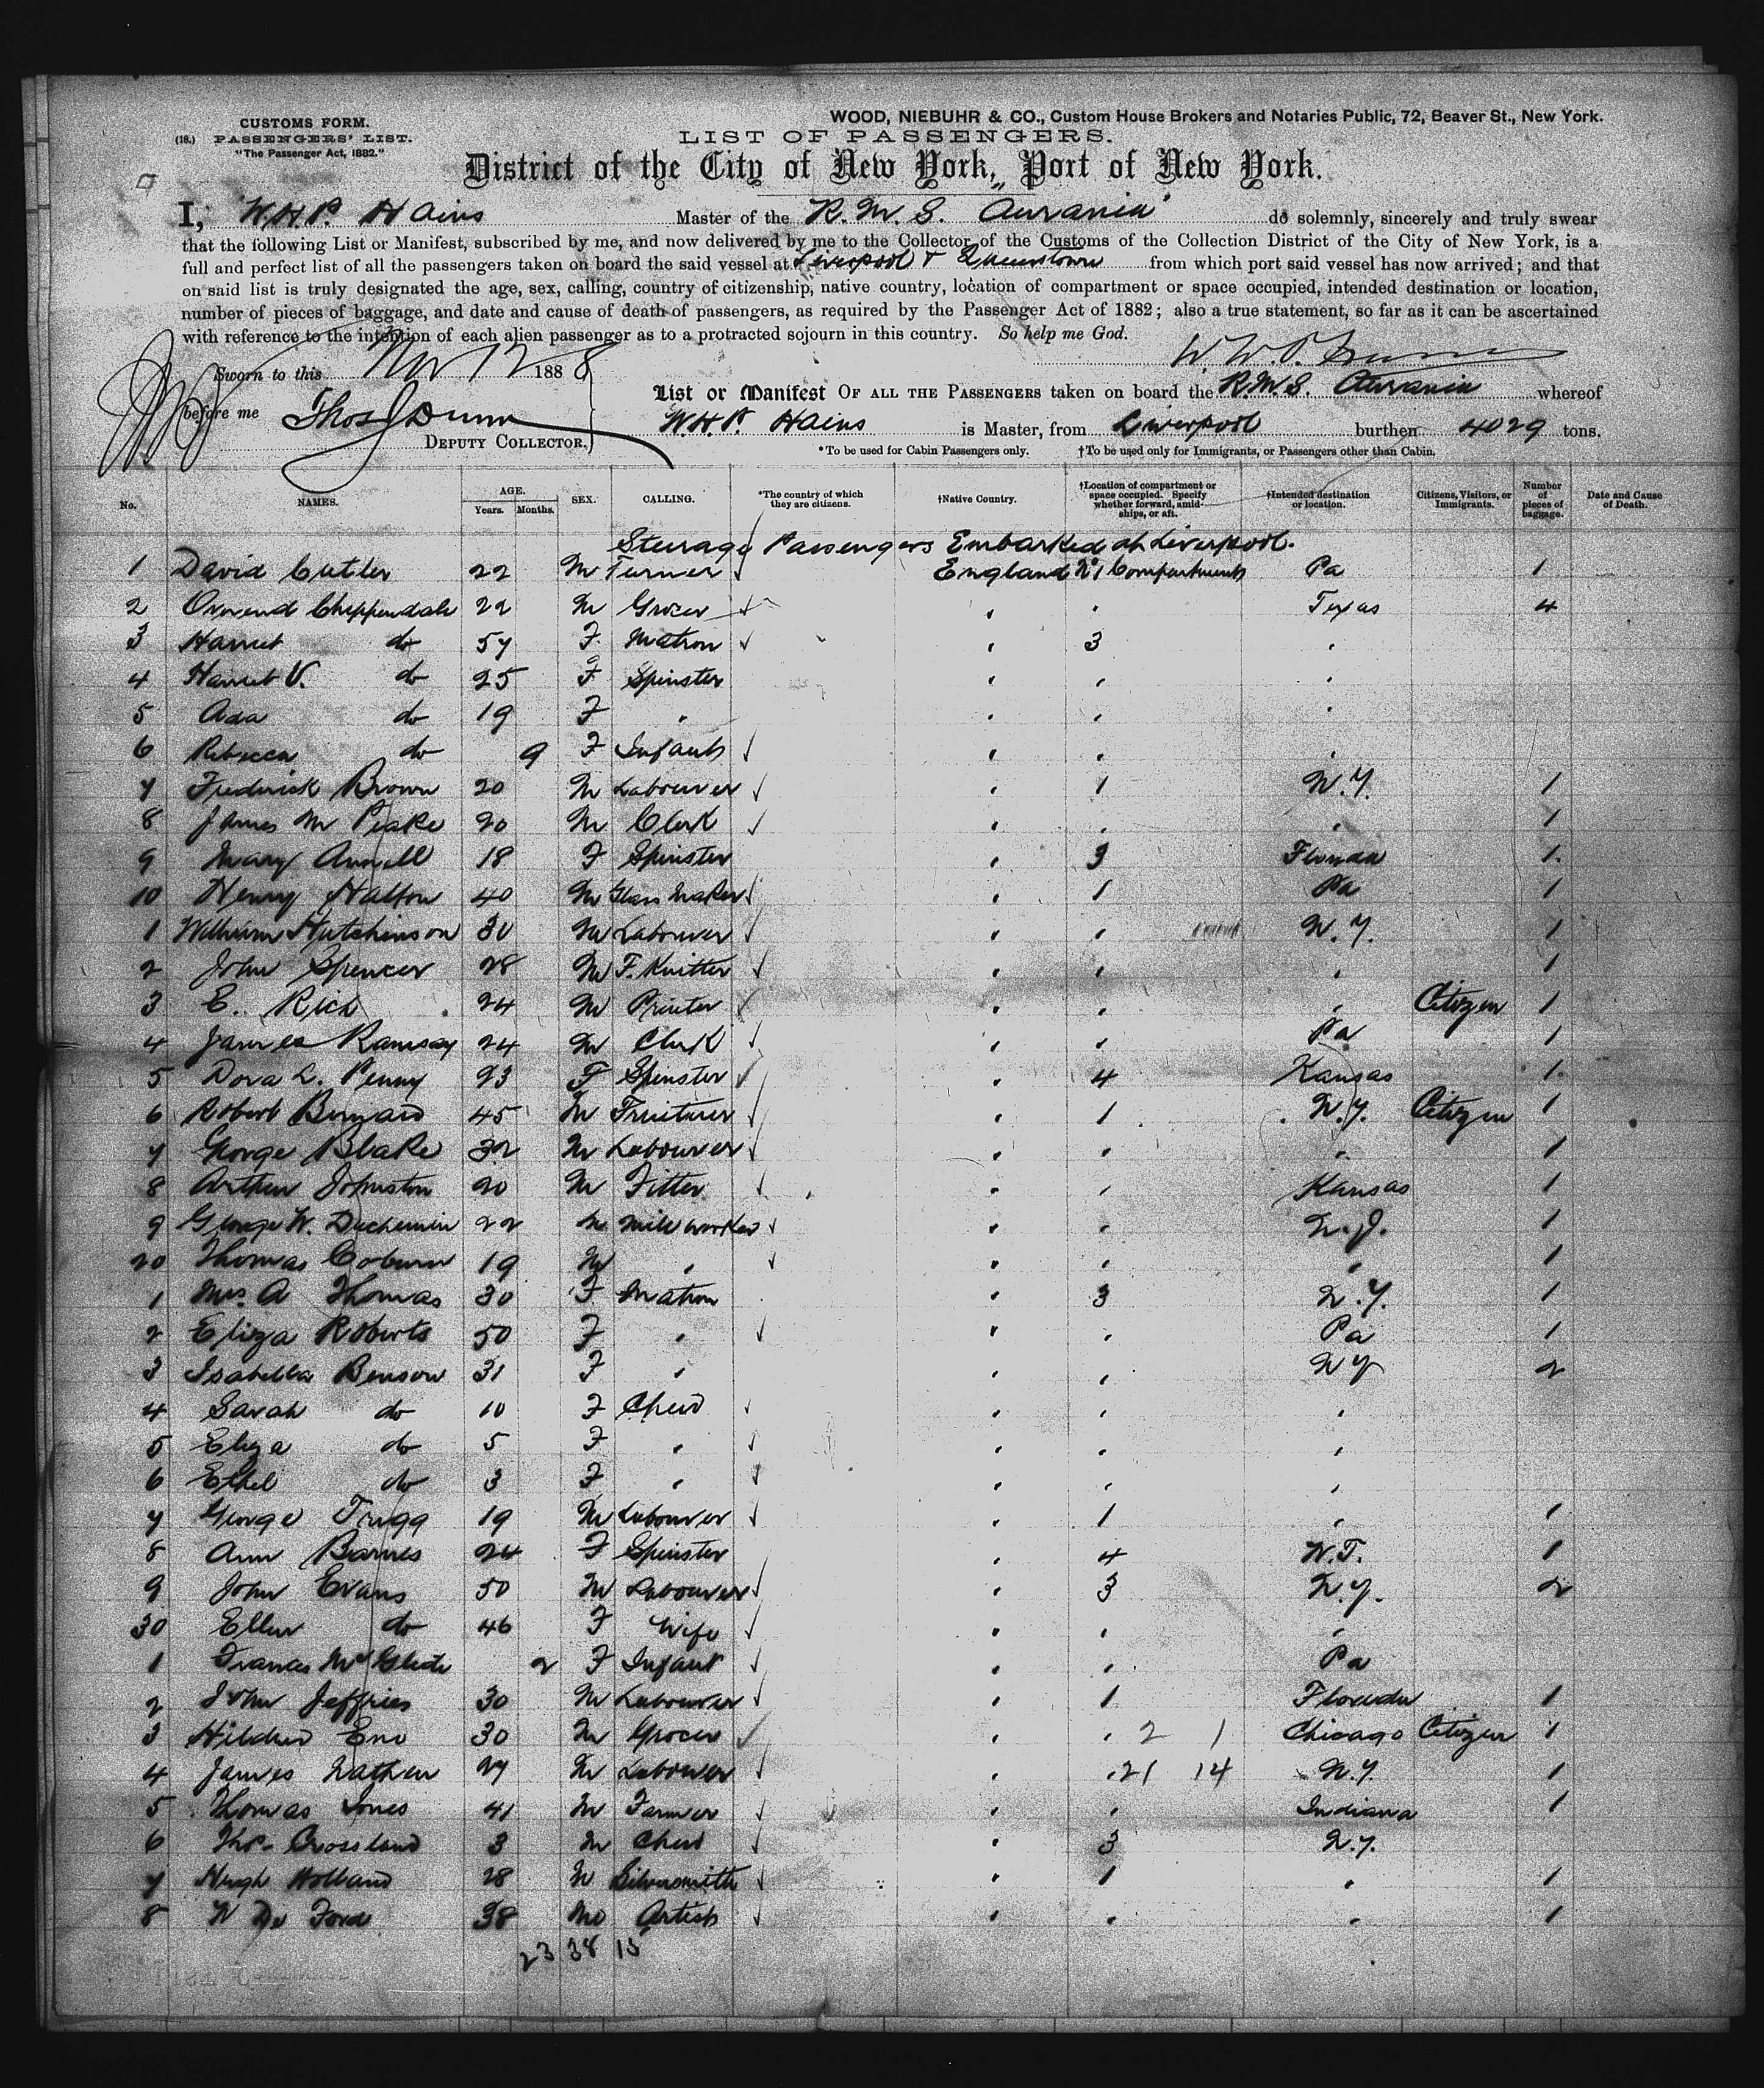 CUSTOMS FORM.
(18.) PASSENGERS' LIST.
"The Passenger Act, 1882."
WOOD, NIEBUHR & CO., Custom House Brokers and Notaries Public, 72, Beaver St., New York.
LIST OF PASSENGERS.
District of the City of New York, Port of New York.
I, W.H.P. Hains Master of the R.M.S. Aurania do solemnly, sincerely and truly swear
that the following List or Manifest, subscribed by me, and now delivered by me to the Collector of the Customs of the Collection District of the City of New York, is a
full and perfect list of all the passengers taken on board the said vessel at Liverpool & Queenstown from which port said vessel has now arrived; and that
on said list is truly designated the age, sex, calling, country of citizenship, native country, location of compartment or space occupied, intended destination or location,
number of pieces of baggage, and date and cause of death of passengers, as required by the Passenger Act of 1882; also a true statement, so far as it can be ascertained
with reference to the intention of each alien passenger as to a protracted sojourn in this country. So help me God.
Sworn to this Nov 12 1888
before me Thos J Dunn
DEPUTY COLLECTOR.
List or Manifest OF ALL THE PASSENGERS taken on board the R.M.S. Aurania whereof
W.H.P. Hains is Master, from Liverpool burthen 4029 tons.
*To be used for Cabin Passengers only. †To be used only for Immigrants, or Passengers other than Cabin.
No. NAMES. AGE. Years. Months. SEX. CALLING. *The country of which they are citizens. †Native Country. †Location of compartment or space occupied. Specify whether forward, amidships, or aft. †Intended destination or location. Citizens, Visitors, or Immigrants. Number of pieces of baggage. Date and Cause of Death.
Steerage Passengers Embarked at Liverpool.
1 David Cutler 22 M Turner England No 1 Compartment Pa 1
2 Chippendale 22 M Grocer " " Texas 4
3 Harriet do 57 F Matron " 3 "
4 Harriet V. do 25 F Spinster " " "
5 Ada do 19 F " " " "
6 Rebecca do 9 F Infant " " "
7 Frederick Brown 20 M Labourer " 1 N.Y. 1
8 James M Peake 20 M Clerk " " " 1
9 Mary 18 F Spinster " 3 Florida 1
10 Henry Halton 40 M Glass Maker " 1 Pa 1
1 William Hutchinson 30 M Labourer " " N.Y. 1
2 John Spencer 28 M F. Knitter " " " 1
3 E. Rich 24 M Printer " " " Citizen 1
4 James Ramsay 24 M Clerk " " Pa 1
5 Dora L. Penny 23 F Spinster " 4 Kansas 1
6 Robert 45 M Fruiterer " 1 N.Y. Citizen 1
7 George Blake 32 M Labourer " " " 1
8 Arthur Johnston 20 M Fitter " " Kansas 1
9 George W. Duchemin 22 M Mill worker " " N.J. 1
20 Thomas Coburn 19 M " " " " 1
1 Mrs. A Thomas 30 F Matron " 3 N.Y. 1
2 Eliza Roberts 50 F " " " Pa 1
3 Isabella Benson 31 F " " " N.Y 2
4 Sarah do 10 F Child " " "
5 Eliza do 5 F " " " "
6 Ethel do 3 F " " " "
7 George Trigg 19 M Labourer " 1 " 1
8 Ann Barnes 24 F Spinster " 4 W.T. 1
9 John Evans 50 M Labourer " 3 N.Y. 2
30 Ellen do 46 F Wife " " "
1 Frances 2 F Infant " " Pa
2 John Jeffries 30 M Labourer " 1 Florida 1
3 30 M Grocer " " 2 1 Chicago Citizen 1
4 James 27 M Labourer " " 21 14 N.Y. 1
5 Thomas Jones 41 M Farmer " " Indiana 1
6 Thos. Crossland 3 M Child " 3 N.Y.
7 Hugh Holland 28 M Silversmith " 1 " 1
8 W De Ford 38 M Artist " " " 1
23 38 15